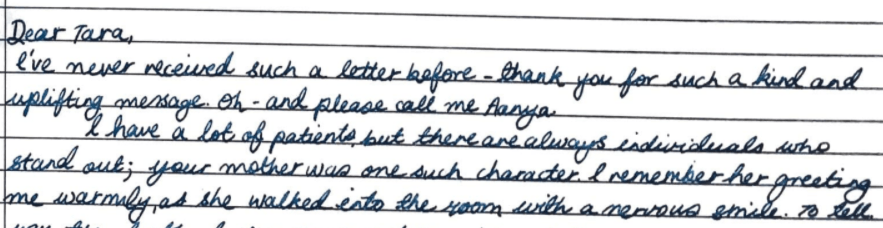 Dear Tara,
I've never received such a letter before - thank you for such a kind and
uplifting message. Oh - and please call me Aanya.
I have a lot of patients, but there are always individuals who
stand out; your mother was one such character. I remember her greeting
me warmly, as she walked into the room with a nervous smile. To tell